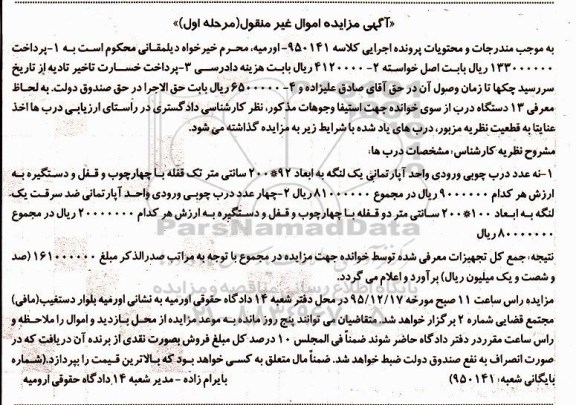 «آگهی مزایده اموال غیر منقول(مرحله اول)»
به موجب مندرجات و محتویات پرونده اجرایی کلاسه ۹۵۰۱۴۱-اورمیه، محرم خیرخواه دیلمقانی محکوم است به ۱-پرداخت
۱۳۳۰۰۰۰۰۰ ریال بابت اصل خواسته ۲- ۴۱۲۰۰۰۰ ریال بابت هزینه دادرسی ۳-پرداخت خسارت تاخیر تادیه از تاریخ
سررسید چکها تا زمان وصول آن در حق آقای صادق علیزاده و ۴- ۶۵۰۰۰۰۰ ریال بابت حق الاجرا در حق صندوق دولت. به لحاظ
معرفی ۱۳ دستگاه درب از سوی خوانده جهت استیفا وجوهات مذکور، نظر کارشناسی دادگستری در راستای ارزیابی درب ها اخذ
عنایتا به قطعیت نظریه مزبور، درب های یاد شده با شرایط زیر به مزایده گذاشته می شود.
مشروح نظریه کارشناس: مشخصات درب ها:
۱-نه عدد درب چوبی ورودی واحد آپارتمانی یک لنگه به ابعاد ۹۲*۲۰۰ سانتی متر تک قفله با چهارچوب و قفل و دستگیره به
ارزش هر کدام ۹۰۰۰۰۰۰ ریال در مجموع ۸۱۰۰۰۰۰۰ ریال ۲-چهار عدد درب چوبی ورودی واحد آپارتمانی ضد سرقت یک
لنگه به ابعاد ۱۰۰*۲۰۰ سانتی متر دو قفله با چهارچوب و قفل و دستگیره به ارزش هر کدام ۲۰۰۰۰۰۰۰ ریال در مجموع
۸۰۰۰۰۰۰۰ ریال
نتیجه: جمع کل تجهیزات معرفی شده توسط خوانده جهت مزایده در مجموع با توجه به مراتب صدرالذکر مبلغ ۱۶۱۰۰۰۰۰۰ (صد
و شصت و یک میلیون ریال) برآورد و اعلام می گردد.
مزایده راس ساعت ۱۱ صبح مورخه ۹۵/۱۲/۱۷ در محل دفتر شعبه ۱۴ دادگاه حقوقی اورمیه به نشانی اورمیه بلوار دستغیب(مافی)
مجتمع قضایی شماره ۲ برگزار خواهد شد. متقاضیان می توانند پنج روز مانده به موعد مزایده از محل بازدید و اموال را ملاحظه و
راس ساعت مقرر در دفتر دادگاه حاضر شوند ضمناً فی المجلس ۱۰ درصد کل مبلغ فروش بصورت نقدی از برنده آن دریافت که در
صورت انصراف به نفع صندوق دولت ضبط خواهد شد. ضمناً مال متعلق به کسی خواهد بود که بالاترین قیمت را بپردازد.(شماره
بایگانی شعبه: ۹۵۰۱۴۱) بایرام زاده - مدیر شعبه ۱۴ دادگاه حقوقی ارومیه
ParsNamadData